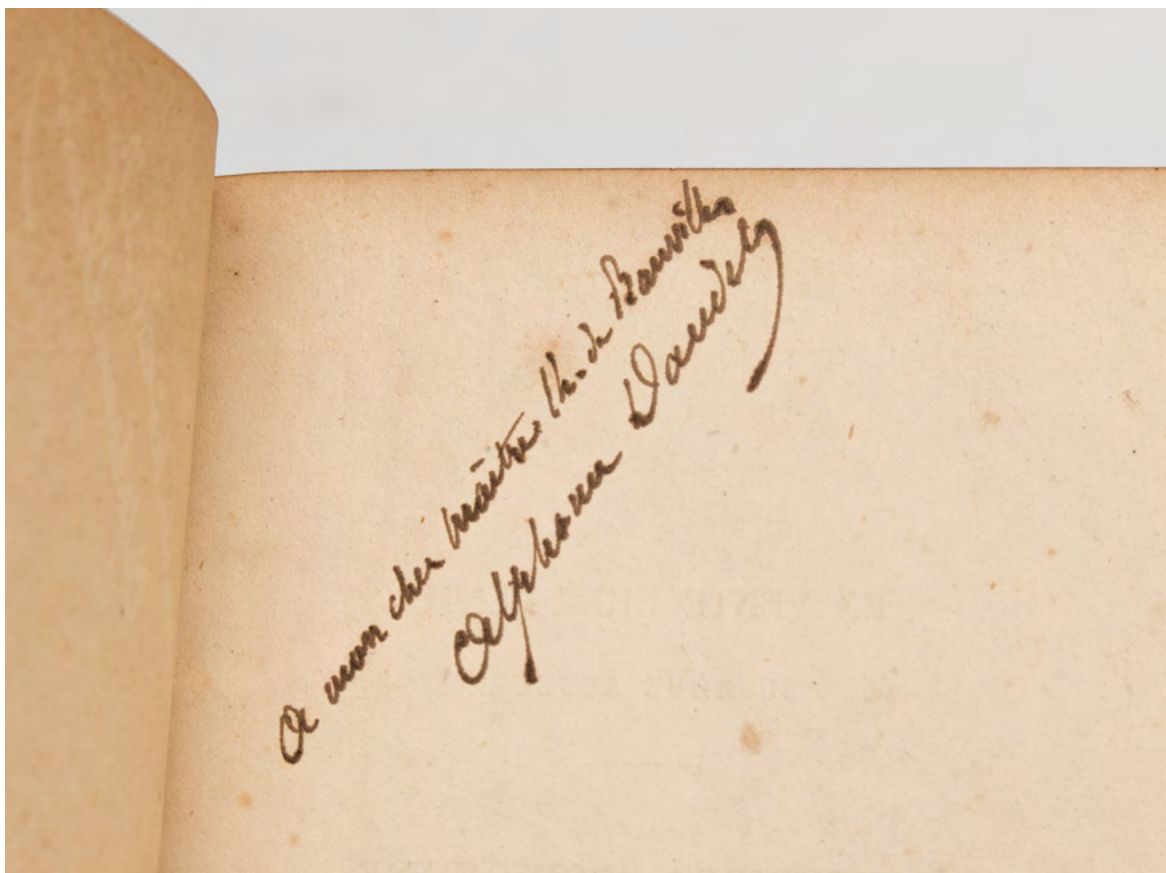 a mon cher maître Th. de Banville
Alphonse Daudet